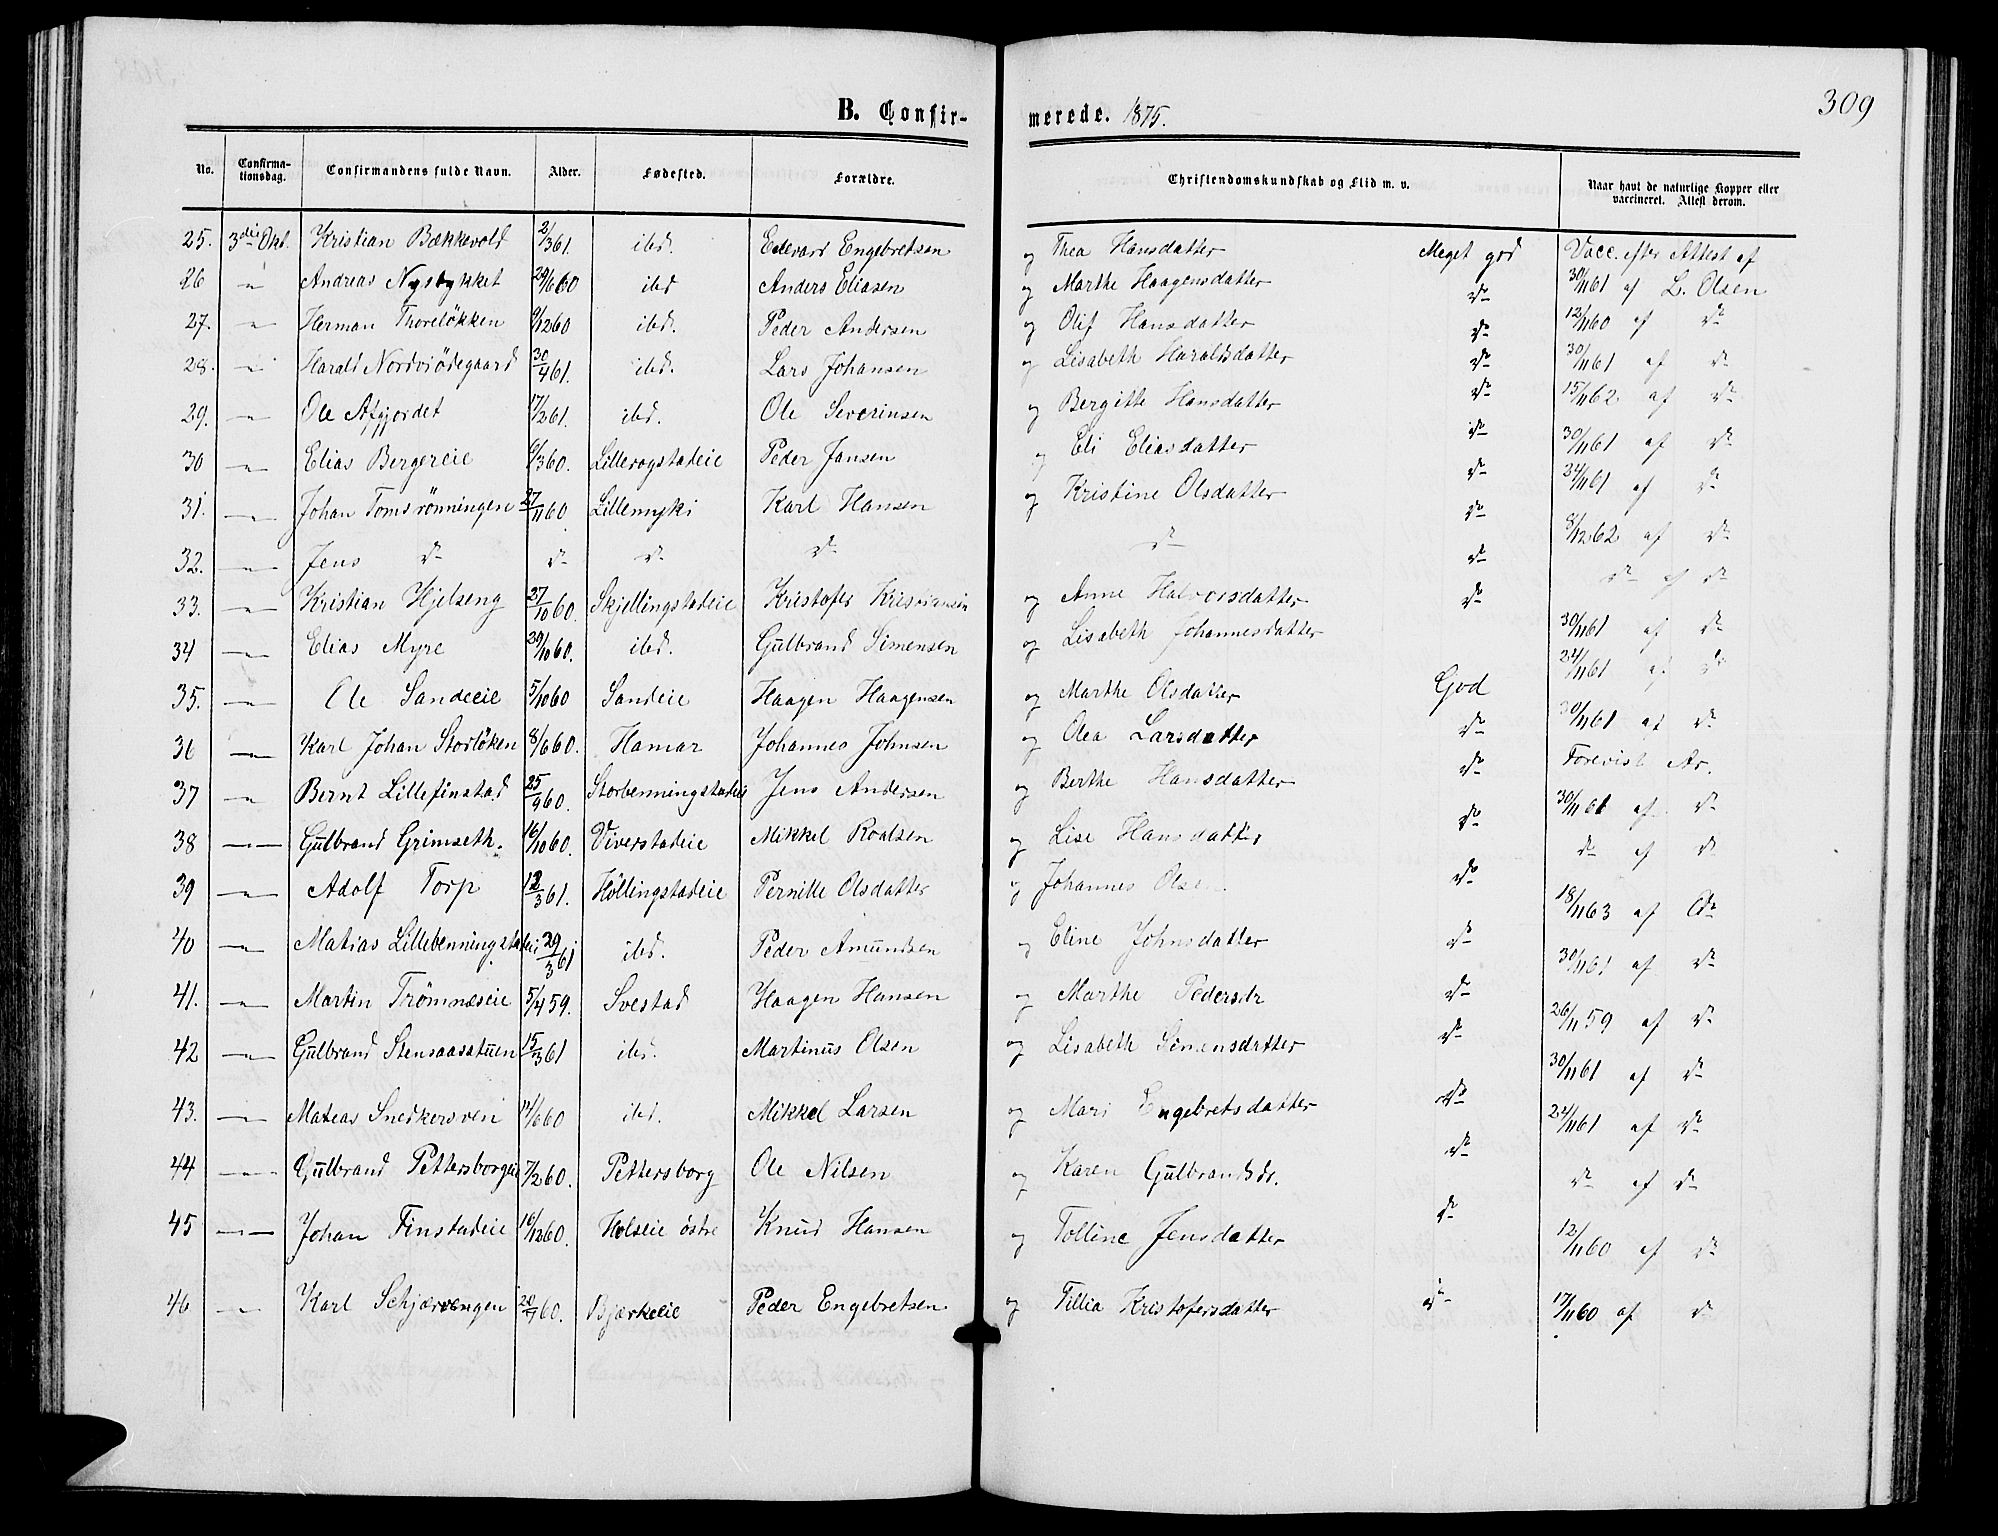 309
B. Confirmerede. 1875.
No. Confirmationsdag. Confirmandens fulde Navn. Alder. Fødested. Forældre. Christendomskundskab og Flid m. v. Naar havt de naturlige Kopper eller vaccineret. Attest derom.
25. 3die Okt. Kristian Bækkevold 2/3 61. ibd. Edevard Engebretsen og Thea Hansdatter Meget god Vacc. efter Attest af
26 " Andreas 29/6 60 ibd Anders Eliasen og Marthe Haagensdatter do 30/11 61 af L. Olsen
27. " Herman Thoreløkken 6/12 60 ibd. Peder Andersen og Olif Hansdatter do 12/11 60 af do
28. " Harald Nordviødegaard 30/4 61. ibd. Lars Johansen og Lisabeth Haraldsdatter do 30/11 61 af do
29. " Ole Afgjordet 17/2 61. ibd. Ole Severinsen og Bergitte Hansdatter do 15/11 62 af do
30 " Elias Bergereie 6/3 60. Lillerogstadeie Peder Jansen og Eli Eliasdatter do 30/11 61 af do
31. " Johan Tomsrønningen 27/11 60. Lillemyki Karl Hansen og Kristine Olsdatter do 24/11 61 af do
32. " Jens do do do do do do 8/12 62 af do
33. " Kristian Hjelseng 27/10 60. Skjellingstadeie Kristofer Kristiansen og Anne Halvorsdatter do do af do
34 " Elias Myre 29/10 60. ibd. Gulbrand Simensen og Lisabeth Johannesdatter 30/11 61 af do
35. " Ole Sandeeie 5/10 60 Sandeie Haagen Haagensen og Marthe Olsdatter God 24/11 61 af do
36 " Karl Johan Storløken 8/6 60. Hamar Johannes Johnsen og Olea Larsdatter do 30/11 61 af do
37 " Bernt Lillefinstad 25/9 60. Storbenningstadeie Jens Andersen og Berthe Hansdatter do Forevist Ar.
38 " Gulbrand Grimseth. 16/10 60. Viverstadeie Mikkel Roalsen og Lise Hansdatter do 30/11 61 af do
39 " Adolf Torp 12/3 61. Høllingstadeie Pernille Olsdatter og Johannes Olsen. do do af do
40 " Matias Lillebenningstadeie 29/3 61 ibd. Peder Amundsen og Eline Johnsdatter do 18/11 63 af do
41. " Martin Trømnæseie 5/4 59. Svestad Haagen Hansen og Marthe Pedersdr do 30/11 61 af do
42 " Gulbrand Stensaasstuen 15/3 61 ibd. Martinus Olsen og Lisabeth Simensdatter do 26/11 59 af do
43. " Mateas Snedkersven 14/6 60 ibd. Mikkel Larsen og Mari Engebretsdatter do 30/11 61 af do
44 " Gulbrand Pettersborgeie 7/2 60. Pettersborg Ole Nilsen og Karen Gulbrandsdr. do 24/11 61 af do
do af do
45 " Johan Finstadeie 16/12 60. Holseie østre Knud Hansen og Tolline Jensdatter do 12/11 60 af do
46 " Karl Schjærvengen 20/9 60. Bjærkeeie Peder Engebretsen og Tillia Kristofersdatter do 17/11 60 af do